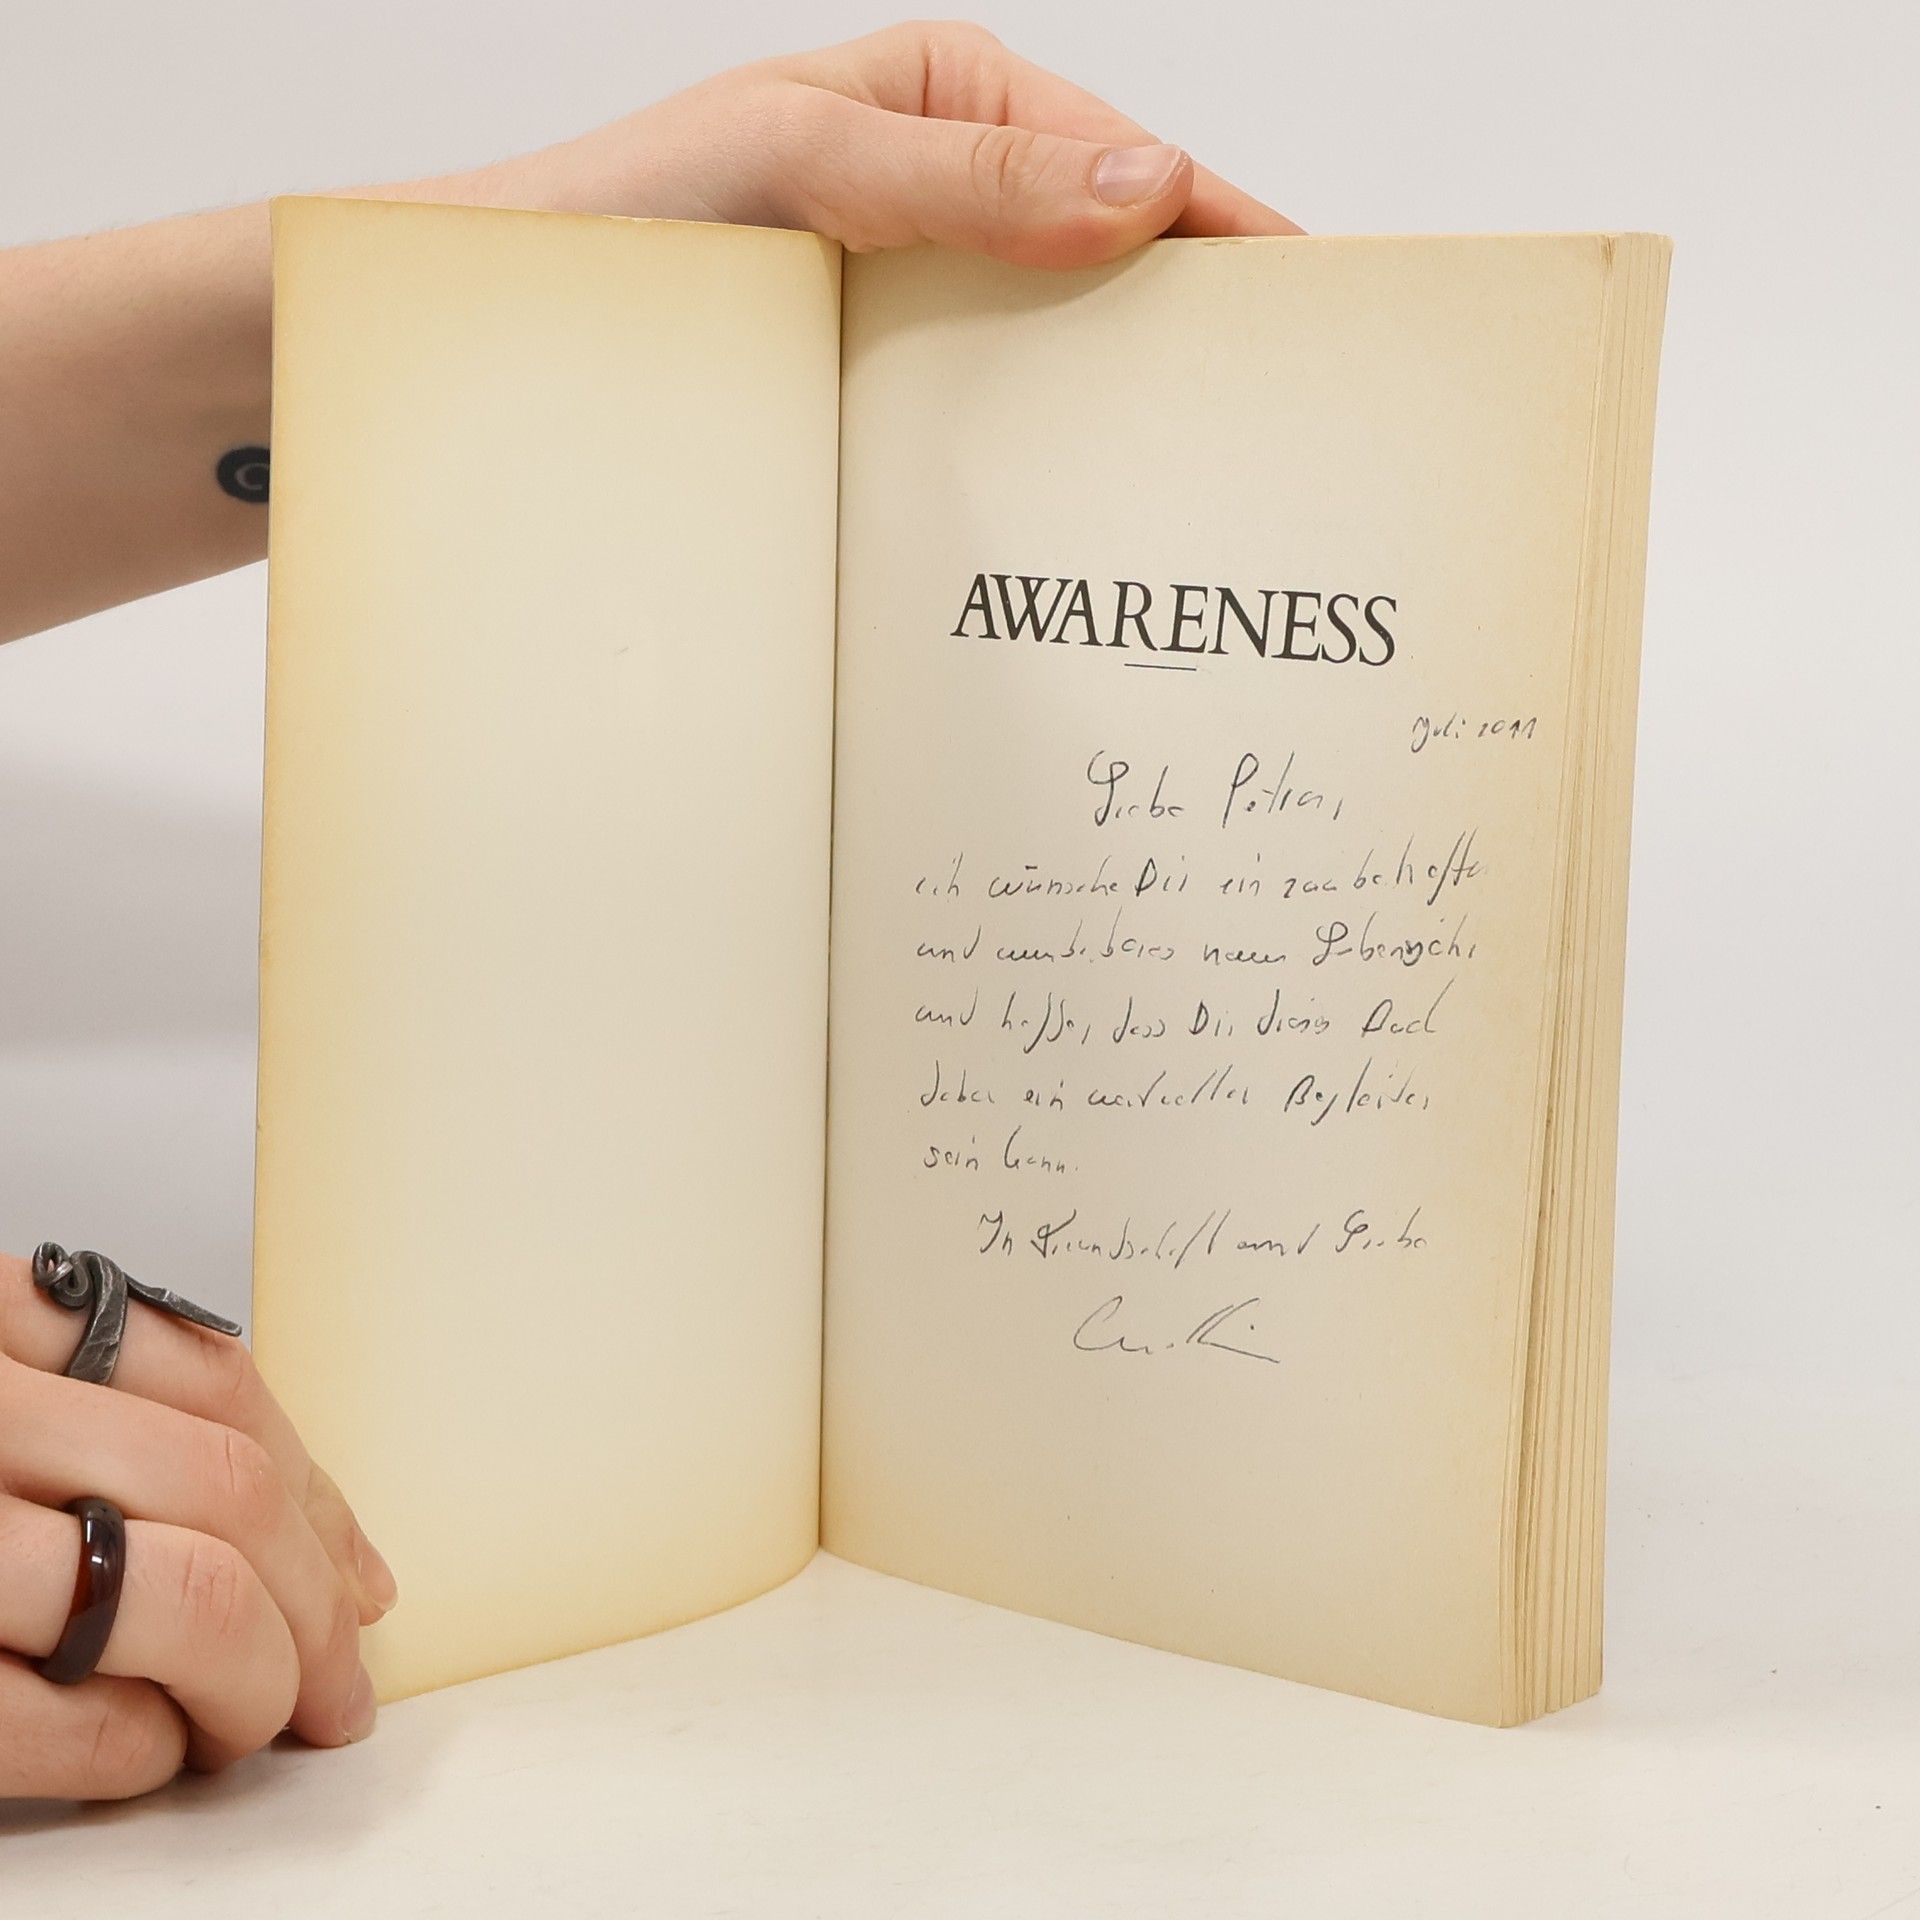 AWARENESS
Juli 2011
Liebe Petra,
ich wünsche Dir ein zauberhaftes
und wunderbares neues Lebensjahr
und hoffe, dass Dir dieses Buch
dabei ein wertvoller Begleiter
sein kann.
In Freundschaft und Liebe